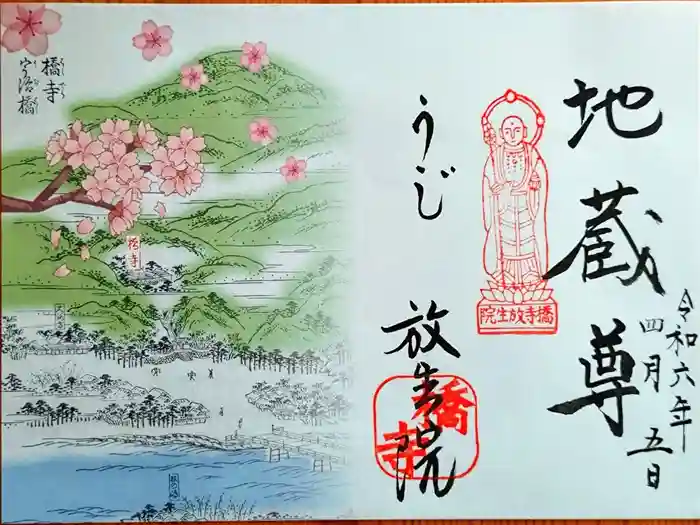 令和六年
四月五日
地蔵尊
橋寺放生院
うじ
放生院
橋寺
橋寺
はし でら
宇治橋
橋寺